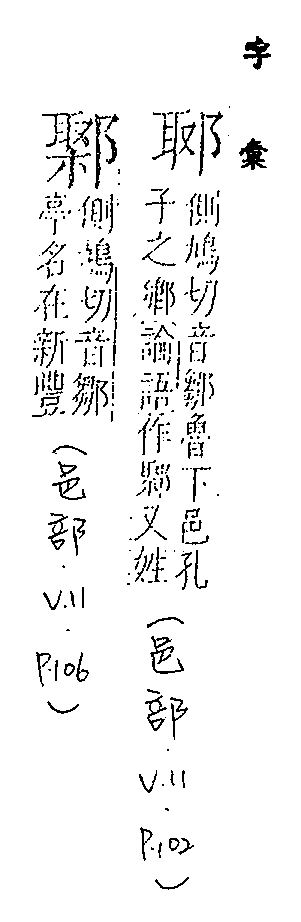 字彙
郰
側鳩切音鄒魯下邑孔
子之鄉論語作鄹又姓
(邑部.V.11.P.102)
鄹
側鳩切音鄒
亭名在新豐
(邑部.V.11.P.106)